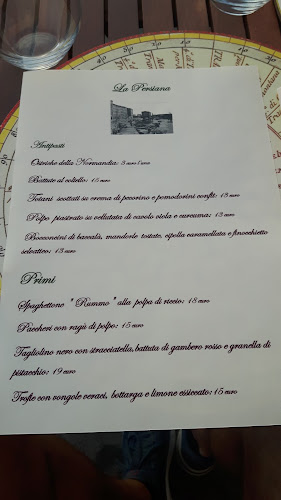 La Persiana
Antipasti
Ostriche della Normandia: 3 euro l'una
Battuta al coltello: 15 euro
Totani scottati su crema di pecorino e pomodorini confit: 13 euro
Polpo piastrato su vellutata di cavolo viola e curcuma: 13 euro
Bocconcini di baccalà, mandorle tostate, cipolla caramellata e finocchietto
selvatico: 13 euro
Primi
Spaghettone "Rummo" alla polpa di riccio: 18 euro
Paccheri con ragù di polpo: 15 euro
Tagliolino nero con stracciatella, battuta di gambero rosso e granella di
pistacchio: 19 euro
Trofie con vongole veraci, bottarga e limone essiccato: 15 euro